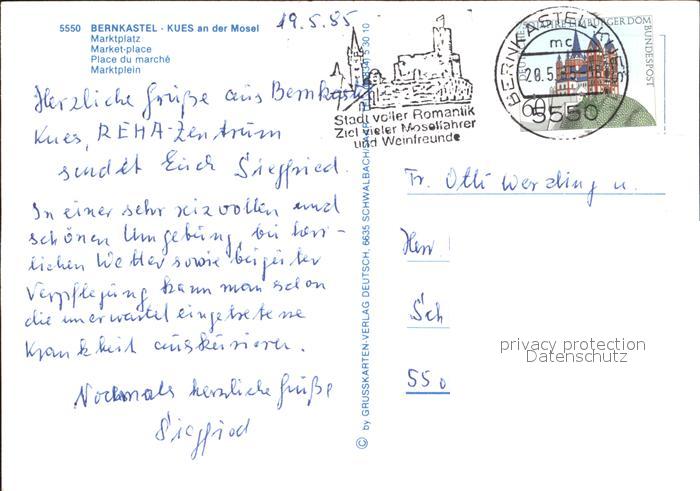 5550 BERNKASTEL - KUES an der Mosel
Marktplatz
Market-place
Place du marché
Marktplein
19.5.85
Herzliche Grüße aus Bernkastel
Kues, REHA-Zentrum
sendet Euch Siegfried.
In einer sehr reizvollen und
schönen Umgebung, bei herr-
lichen Wetter sowie bei guter
Verpflegung kann man schon
die unerwartet eingetretene
Krankheit auskurieren.
Nochmals herzliche Grüße
Siegfried
© by GRUSSKARTEN-VERLAG DEUTSCH, 6635 SCHWALBACH/
5 30 10
Stadt voller Romantik
Ziel vieler Moselfahrer
und Weinfreunde
BERNKASTEL-KUES
mc
20.5.85-18
5550
JAHRE LIMBURGER DOM
DEUTSCHE BUNDESPOST
60
Fr. Otti Werding u.
Herr
Sch
550
privacy protection
Datenschutz